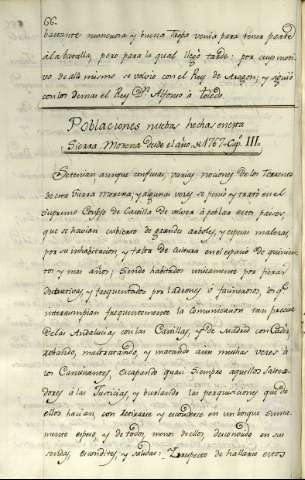 66.
bastante numerosa y buena tropa venia para tener parte
à la batalla, pero para la qual llegò tarde: por cuyo moti-
vo de alli mismo se volvio con el Rey de Aragon; y siguiò
con los demas el Rey Dn. Alfonso à Toledo.
Poblaciones nuebas hechas en esta
Sierra Morena desde el año de 1767. Cap. III.
Se tenian aunque confusas, varias nociones de los Terrenos
de esta Sierra Morena; y algunas veces se pensò y tratò en el
Supremo Consejo de Castilla de volver à poblar estos parages,
que se havian cubierto de grandes arboles, y espesas malezas
por su inhabitacion, y falta de cultura en el espacio de quinien-
tos y mas años; siendo habitados unicamente por fieras
destructivas, y frequentados por Ladrones ò facinerosos, que
interrumpian frequentemente la comunicacion tan precisa
de las Andalucias con las Castillas, y de Madrid con Cadiz
robando, maltratando, y matando aun muchas veces à
los Caminantes, escapando quasi siempre aquellos saltea-
dores à las Justicias, y burlando las persecuciones que de
ellos hacian, con retirarse y esconderse en un bosque suma-
mente espeso, y de todos, menos de ellos, desconocido en sus
sendas, escondites, y salidas: Respecto de hallarse estos